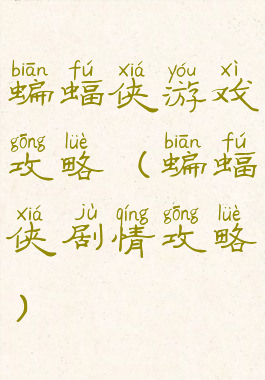 biān fú xiá yóu xì
蝙蝠侠游戏
gōng lüè biān fú
攻略（蝙蝠
xiá jù qíng gōng lüè
侠剧情攻略
）